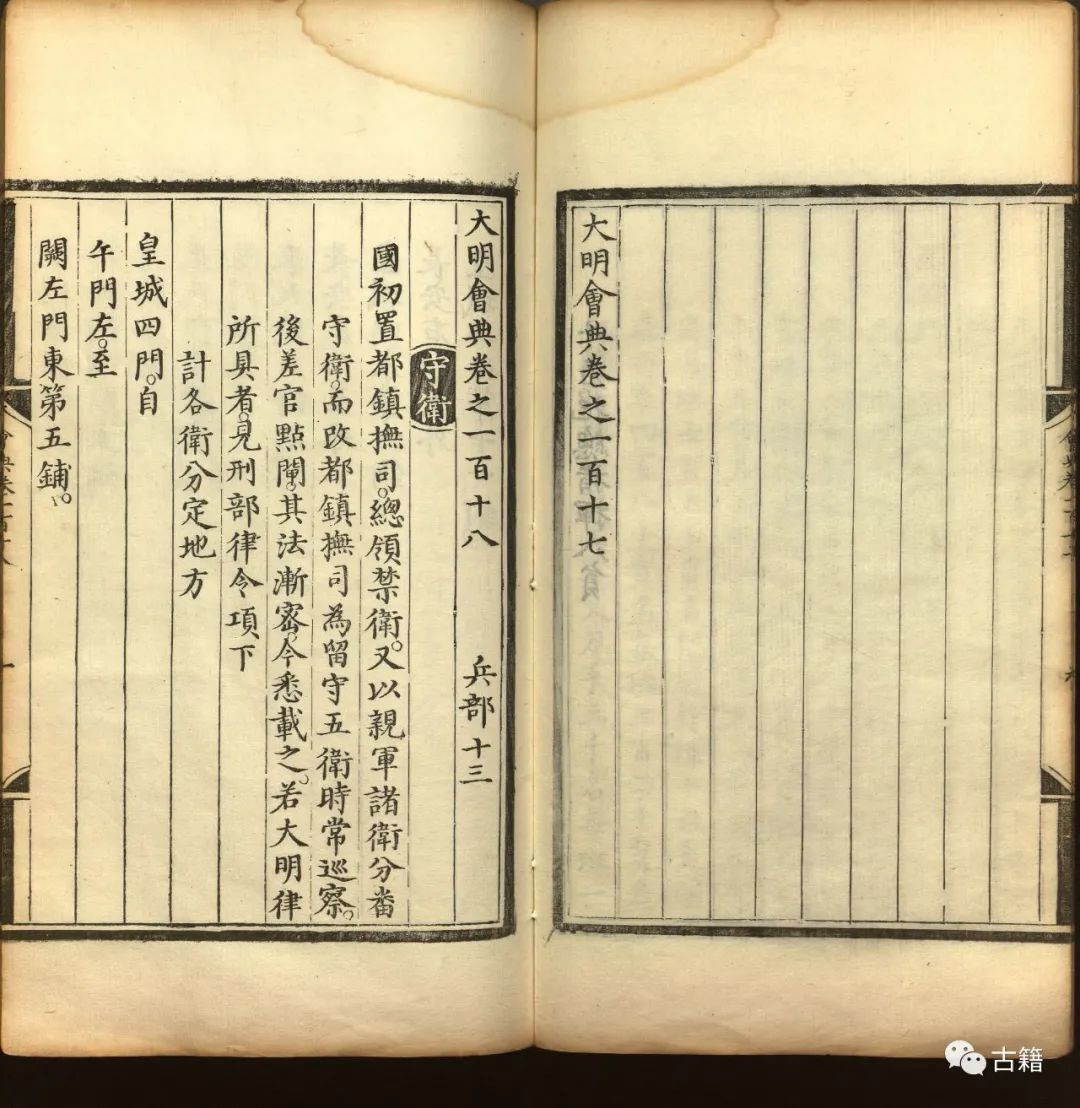 大明會典卷之一百十七
大明會典卷之一百十八 兵部十三
守衛
國初置都鎮撫司。總領禁衛。又以親軍諸衛分畨
守衛。而改都鎮撫司為留守五衛時常巡察。
後差官點閘。其法漸密。今悉載之。若大明律
所具者。見刑部律令項下
計各衛分定地方
皇城四門。自
午門左。至
闕左門東第五鋪。
古籍